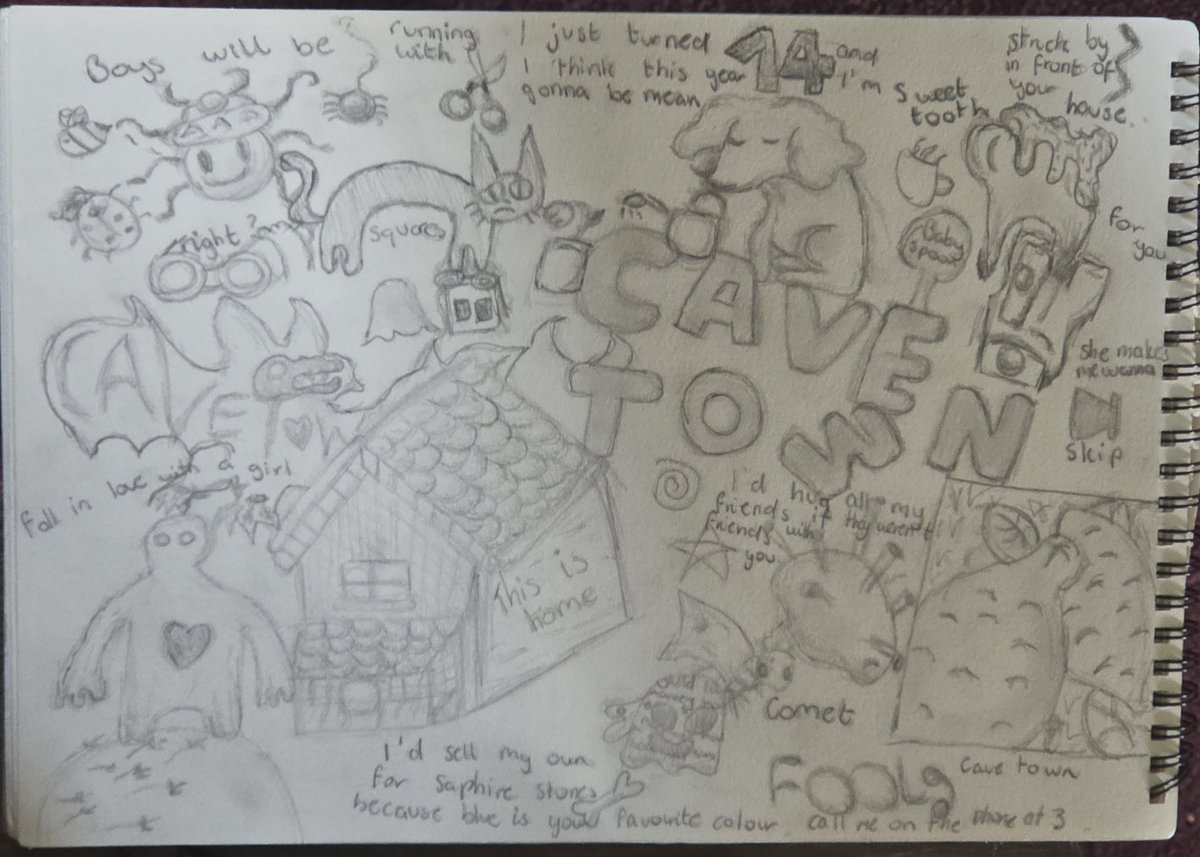 Boys will be
running
with
I just turned 14 and
I think this year I'm sweet
gonna be mean tooth
struck by
in front of
your house.
right in
squares
Baby
spoon
for
you
CAVE
TOWN
A
F W
she makes
me wanna
skip
fall in love with a girl
This is
home
I'd hug all my
friends if they weren't
friends with
you
Comet
I'd sell my own
for saphire stones
because blue is your favourite colour
FOOL
Cave town
call me on the phone at 3